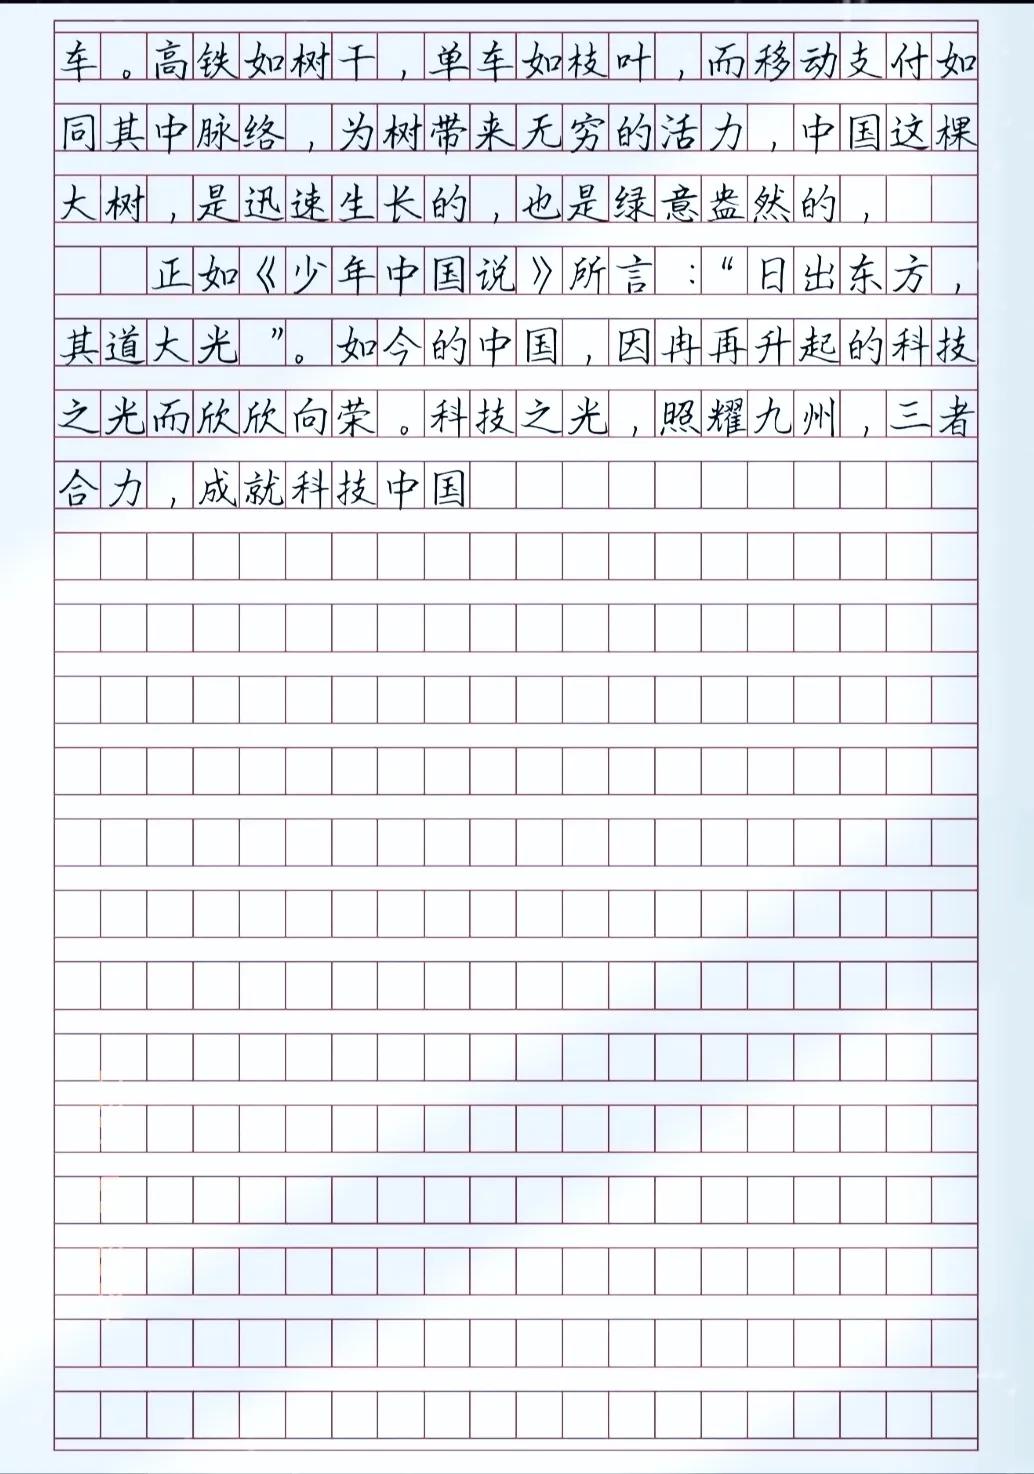 车。高铁如树干，单车如枝叶，而移动支付如
同其中脉络，为树带来无穷的活力，中国这棵
大树，是迅速生长的，也是绿意盎然的，
正如《少年中国说》所言：“日出东方，
其道大光”。如今的中国，因冉再升起的科技
之光而欣欣向荣。科技之光，照耀九州，三者
合力，成就科技中国